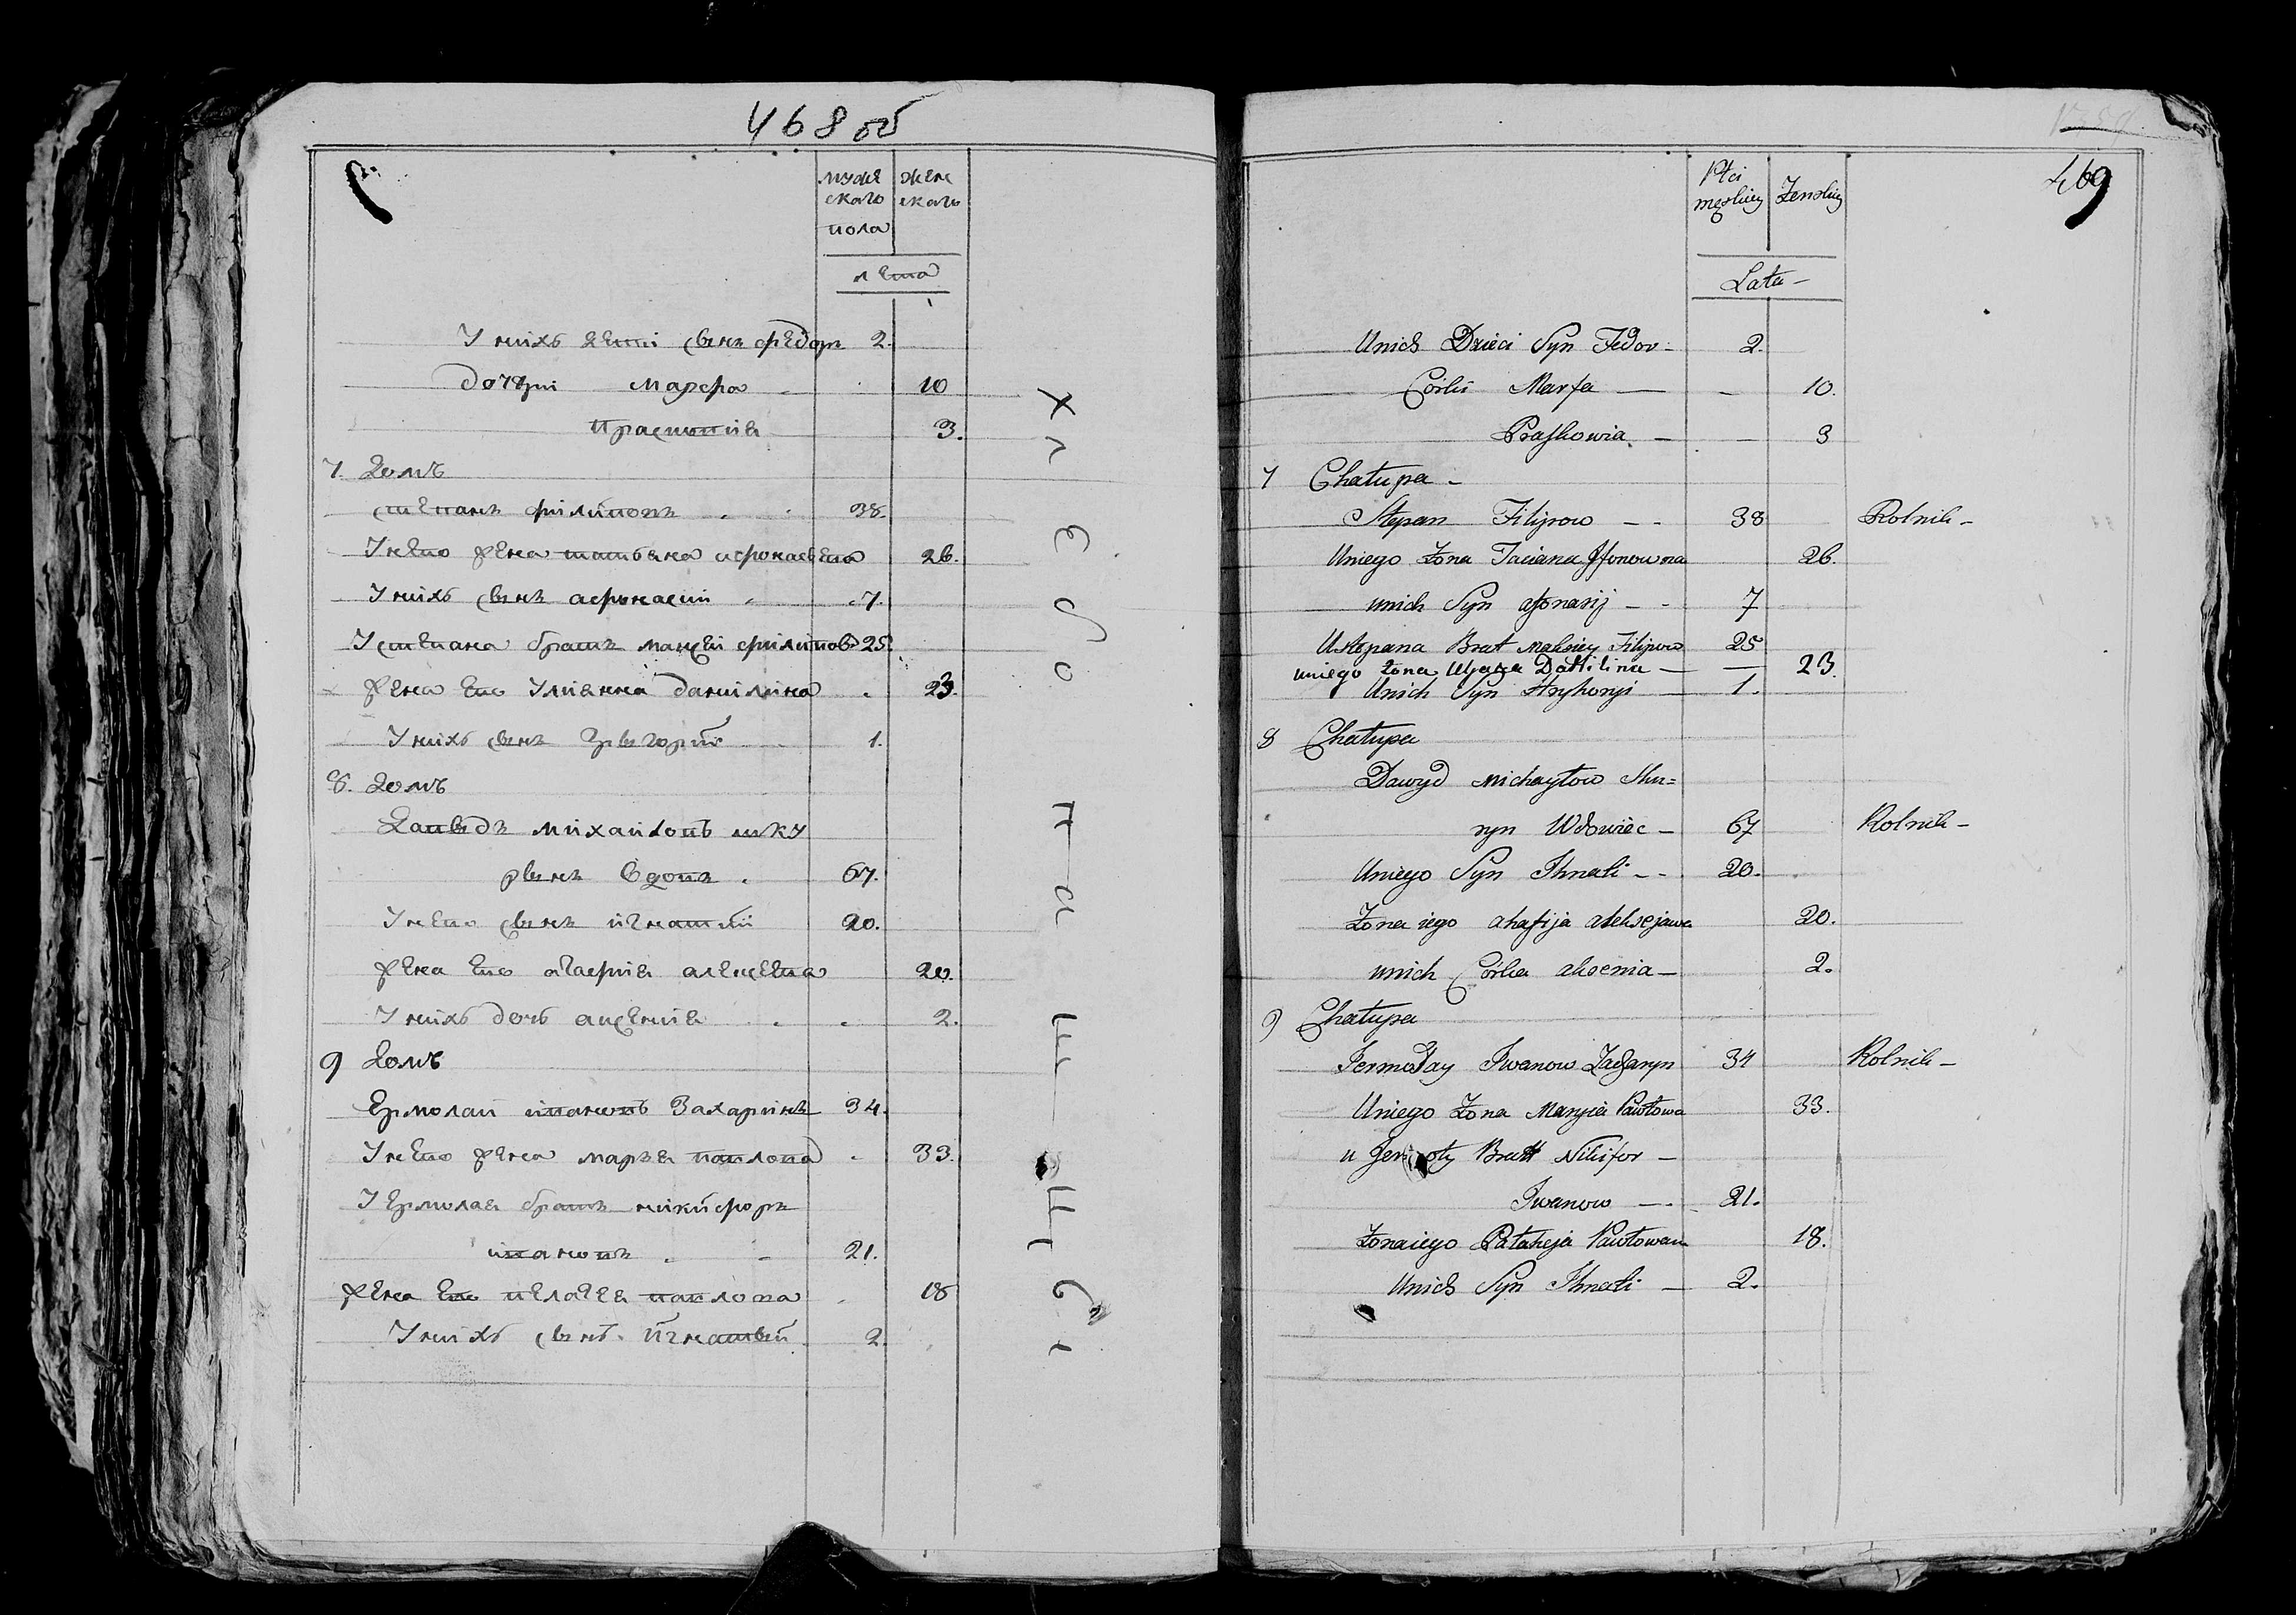 468 об
мужескаго женскаго
пола
лета
У нихъ дети сынъ федоръ 2.
дочери марфа 10
Прасковия 3.
7. Домъ
степанъ филиповъ 38.
У него жена татьяна афонасьева 26.
У нихъ сынъ афонасий 7.
У степана братъ максей филиповъ 25.
жена его Улияна данилина 23.
У нихъ сынъ Грыгорий 1.
8. Домъ
Давыдъ михайловъ шку
рынъ вдовъ 67.
У него сынъ игнатий 20.
жена его агафия алексеева 20.
У нихъ дочь аксения 2.
9 Домъ
Ермолай ивановъ Захаринъ 34.
У него жена марья павлова 33.
У Ермолая братъ никифоръ
ивановъ 21.
жена его пелагея павлова 18
У нихъ сынъ Игнатей 2.
хлебопашецъ
469
Płci męskiey Zenskiey
Lata -
Unich Dzieci Syn Fedor - 2.
Córki Marfa — 10.
Praskowia — 3
7 Chałupa -
Stepan Filipow - 38 Rolnik -
Uniego Żona Taciana Affonowna 26.
unich Syn afonasij - 7
Ustepana Brat Maksiey Filipow 25
uniego żona Uljana Danilina — 23.
Unich Syn Hryhoryi — 1.
8 Chałupa
Dawyd Michayłow Sku=
ryn Wdowiec - 67 Rolnik -
Uniego Syn Ihnati - 20.
Żona iego ahafija aleksejawa 20.
unich Córka aksenia - 2.
9 Chałupa
Jermołay Iwanow Zacharyn 34 Rolnik -
Uniego Żona Maryia Pawłowa 33.
Brat Nikifor -
Iwanow — 21.
Żona iego Pałaheja Pawłowa 18.
Unich Syn Ihnati — 2.